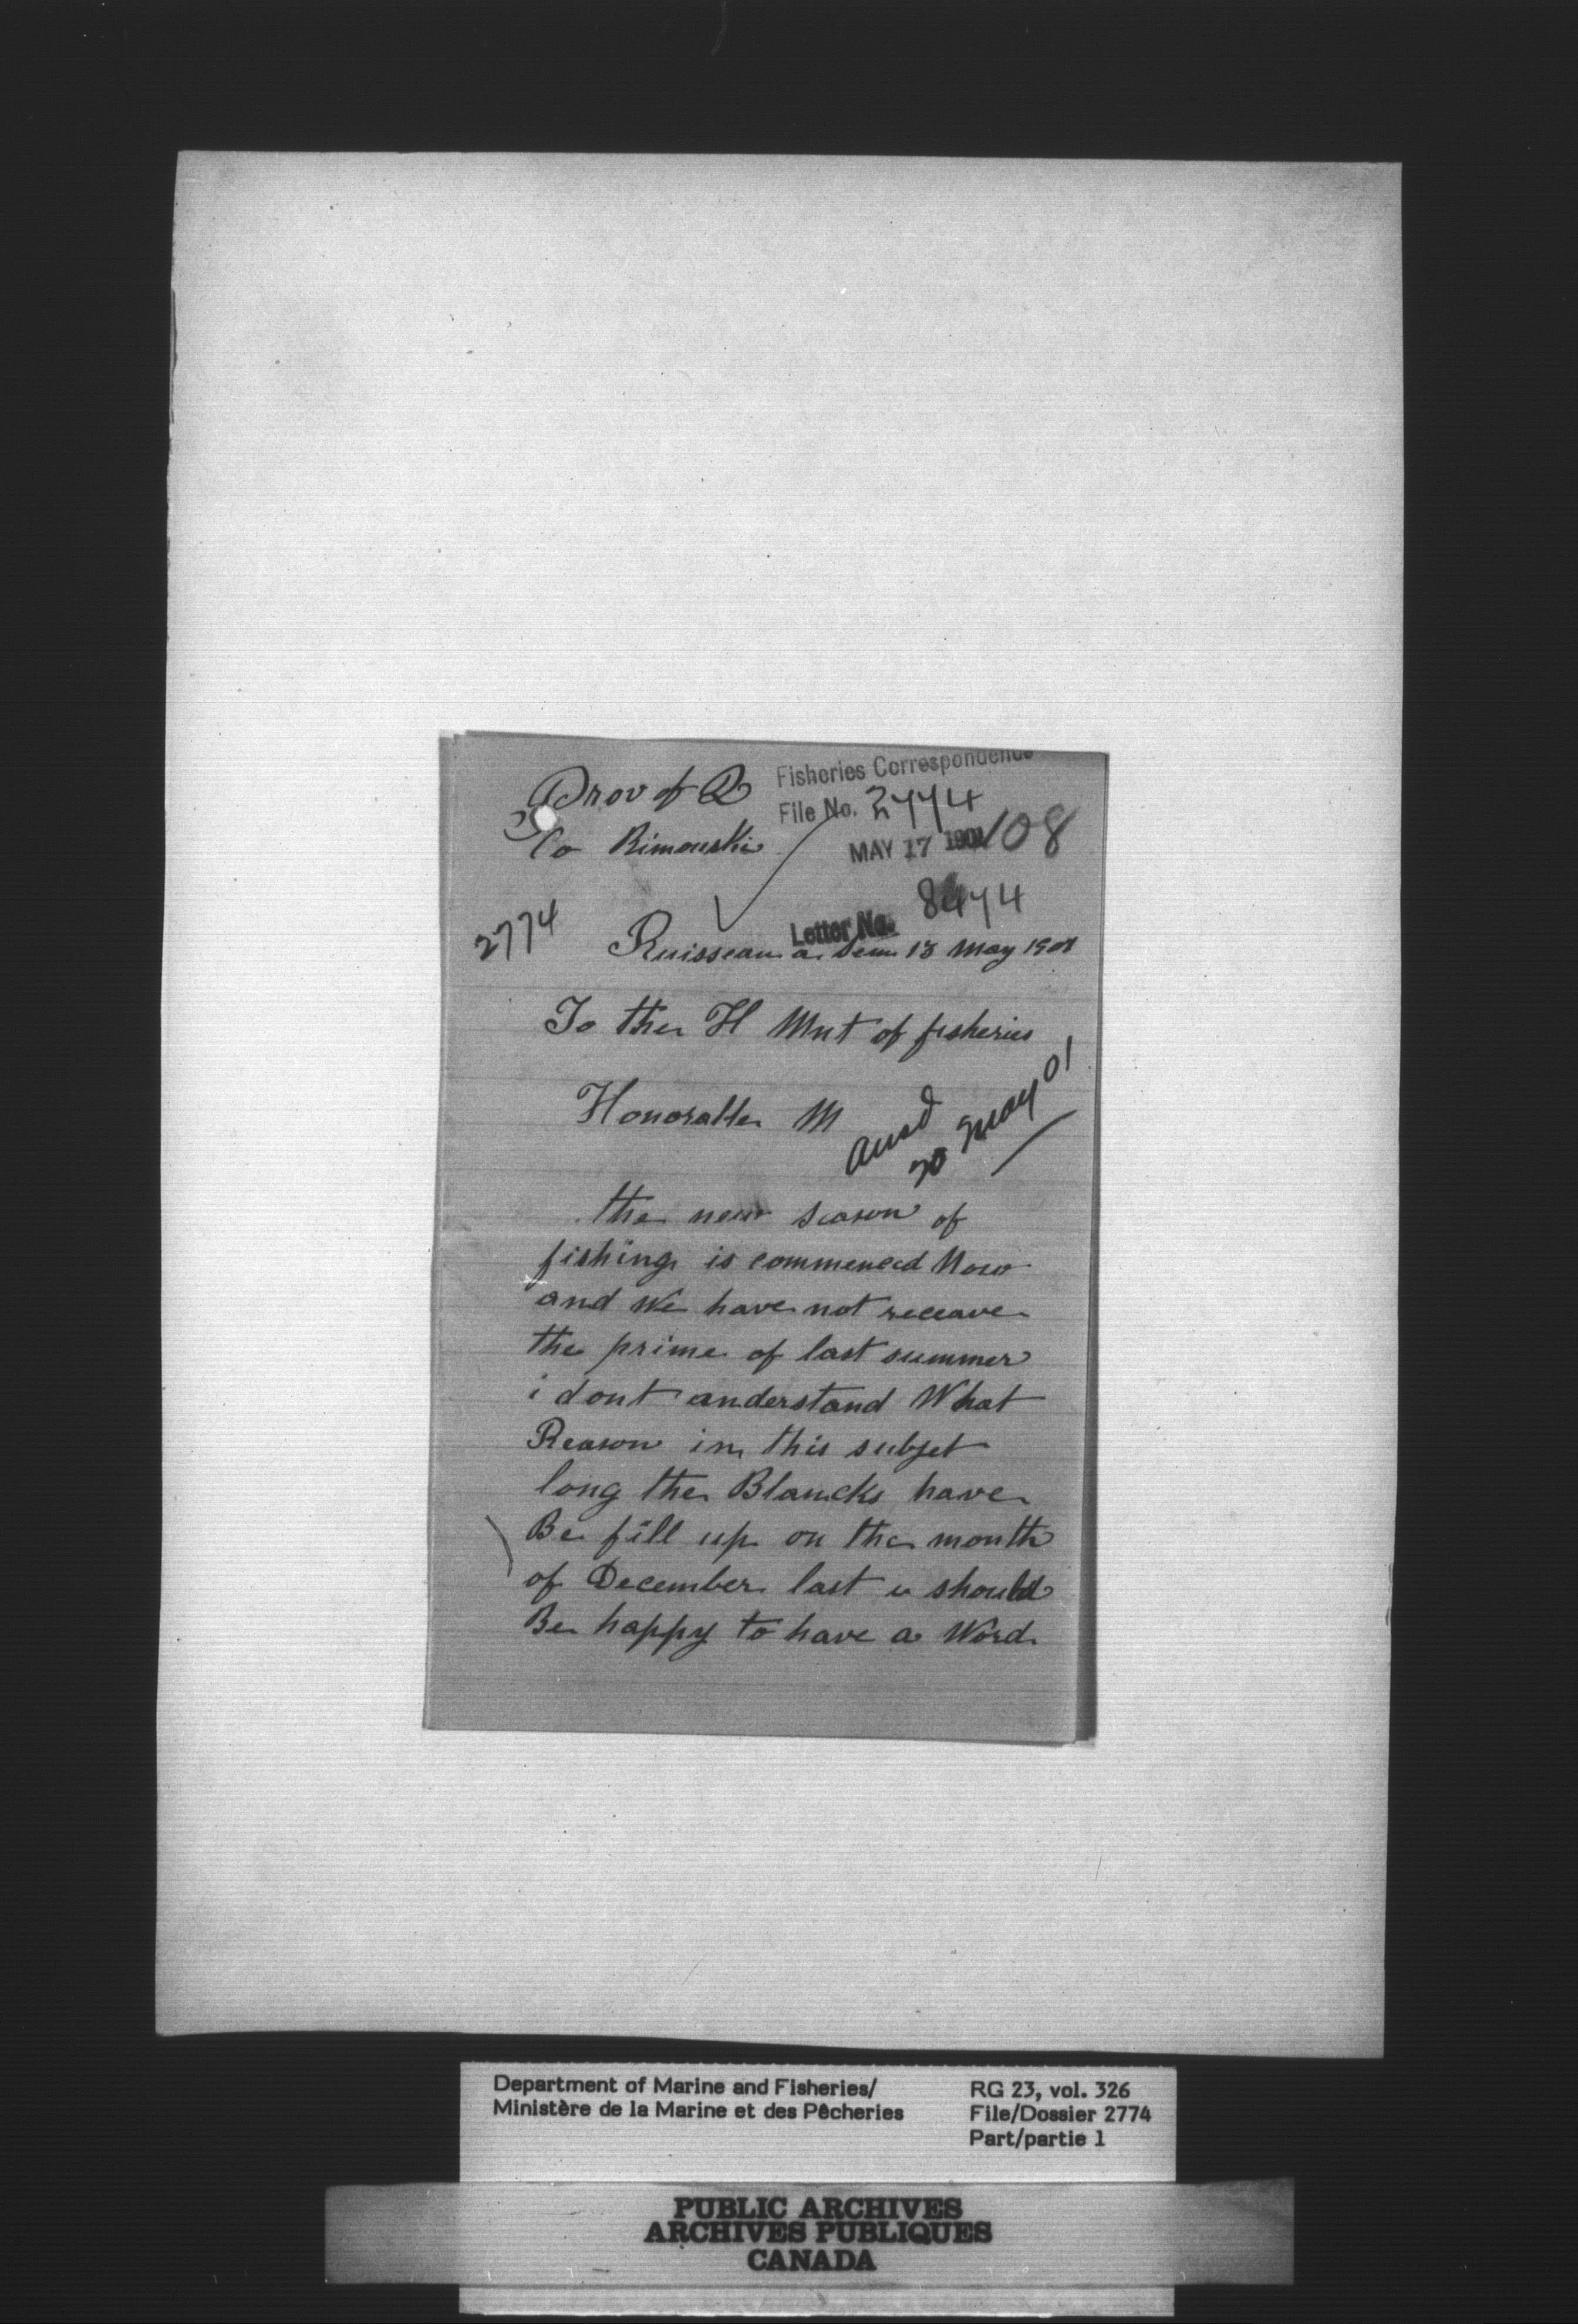 Prov of Q
Fisheries Correspondence
File No. 2774
Co Rimouski
MAY 17 1901 108
8474
2774
Letter No.
Ruisseau a Sem 13 May 1901
To the H Mnt of fisheries
Honorable M
ansd
20 May 01
the new season of
fishing is commenced Now
and We have not receave
the prime of last summer
i dont anderstand What
Reason in this subjet
long the Blancks have
Be fill up on the month
of December last i should
Be happy to have a Word
Department of Marine and Fisheries/
Ministère de la Marine et des Pêcheries
RG 23, vol. 326
File/Dossier 2774
Part/partie 1
PUBLIC ARCHIVES
ARCHIVES PUBLIQUES
CANADA